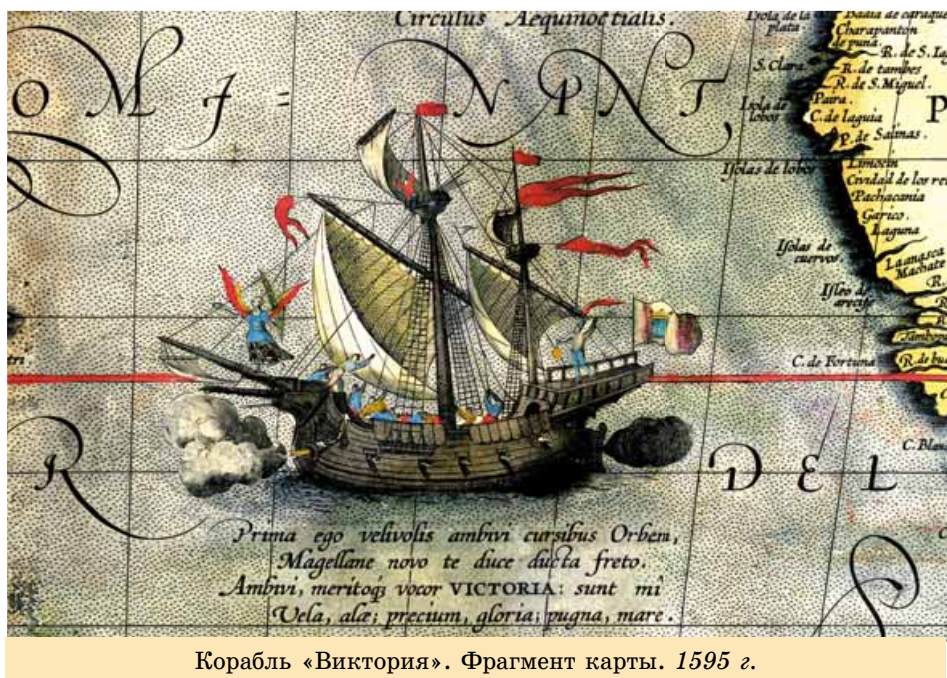 Circulus Aequinoctialis.
O M I = N P N T
Isola de la
plata.
Badia de caraque
Charapanton
de puna.
R. de S. Iag
S. Clara.
R. de tambes
R. de S. Miguel.
Paira.
Isola de
lobos
C. de laguia
P. de Salinas.
P
Isolas de lobos
Limocin
Cividad de los rei
Pachacania
Garico.
Laguna
Isolas de
cuervos.
Laanasca
Machate
R.
Isleo de
arecife
R.
R
Tambo
C. de Fortuna
R. de bu
tri.
C. Blan
R DEL
Prima ego velivolis ambivi cursibus Orbem,
Magellane novo te duce ducta freto.
Ambivi, meritoqꝫ vocor VICTORIA: sunt mî
Vela, alæ; precium, gloria; pugna, mare.
Корабль «Виктория». Фрагмент карты. 1595 г.